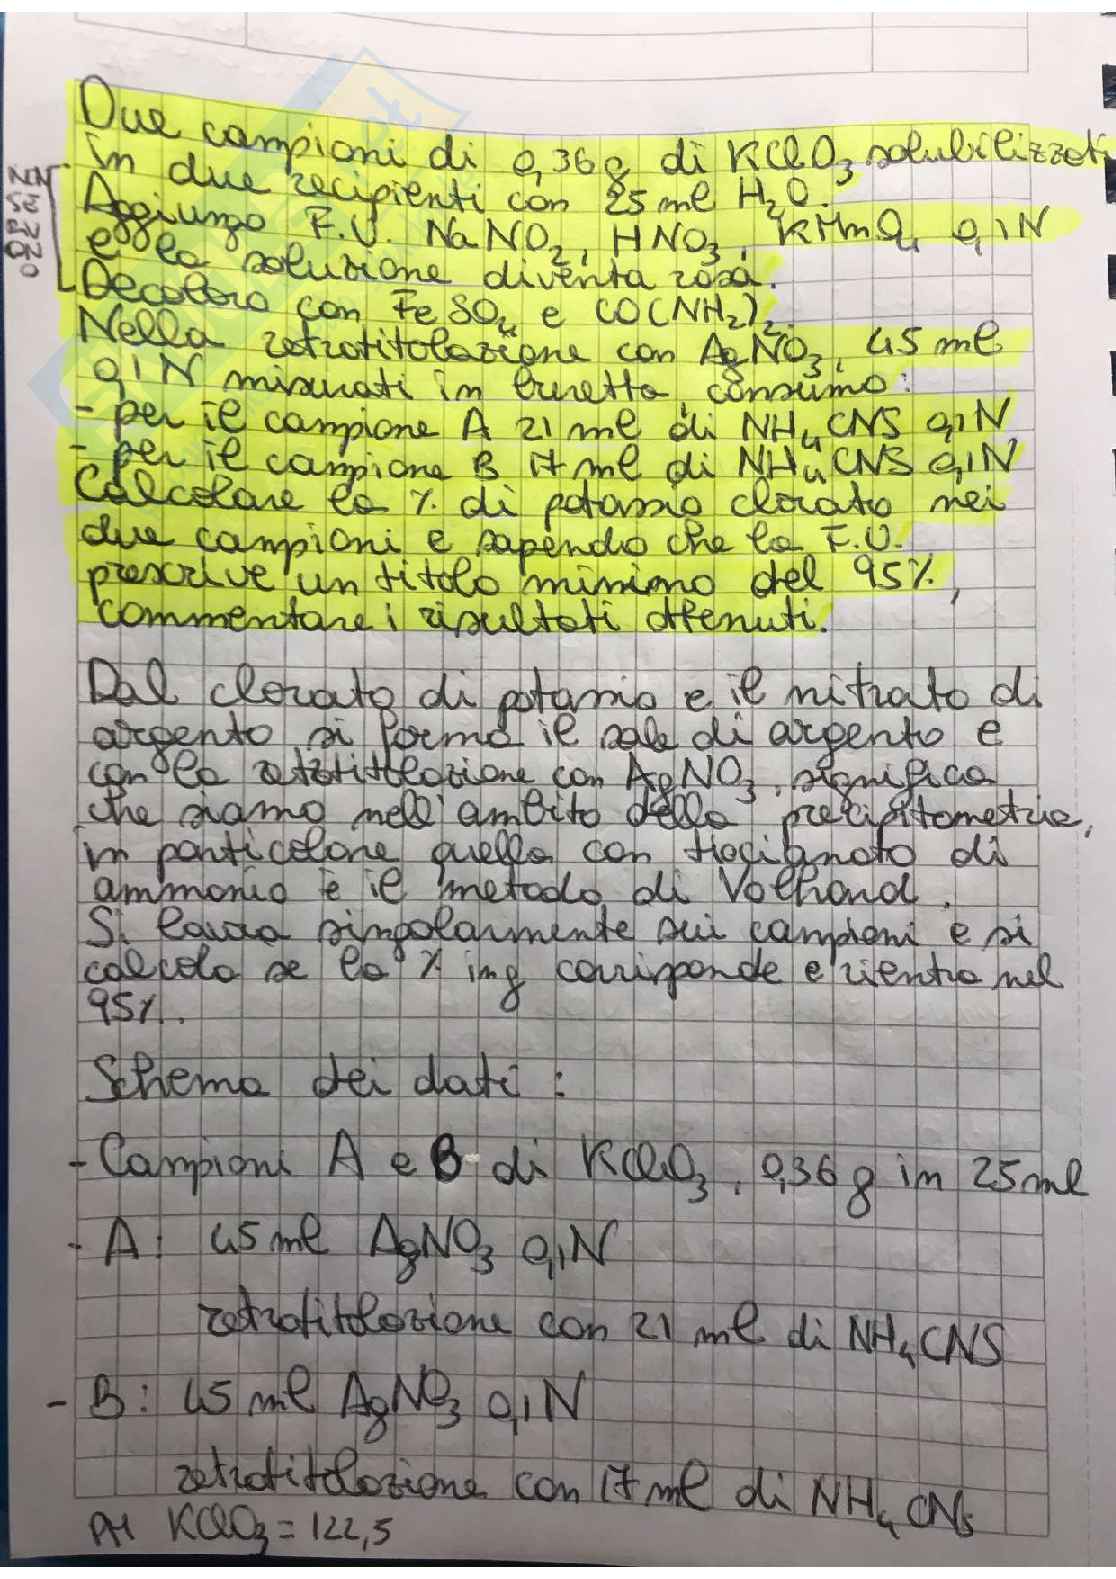 Due campioni di 0,36g di KClO3 solubilizzati
in due recipienti con 25 ml H2O.
Aggiungo F.U. NaNO2, HNO3, KMnO4 0,1N
e la soluzione diventa rosa.
Decoloro con FeSO4 e CO(NH2)2.
Nella retrotitolazione con AgNO3, 45 ml
0,1N misurati in buretta, consumo:
- per il campione A 21 ml di NH4CNS 0,1N
- per il campione B 17 ml di NH4CNS 0,1N
Calcolare la % di potassio clorato nei
due campioni e sapendo che la F.U.
prescrive un titolo minimo del 95%,
commentare i risultati ottenuti.
Dal clorato di potassio e il nitrato di
argento si forma il sale di argento e
con la retrotitolazione con AgNO3, significa
che siamo nell'ambito della precipitometria,
in particolare quella con tiocianato di
ammonio è il metodo di Volhard.
Si lavora singolarmente sui campioni e si
calcola se la % in g corrisponde e rientra nel
95%.
Schema dei dati:
- Campioni A e B di KClO3, 0,36 g in 25 ml
- A: 45 ml AgNO3 0,1N
retrotitolazione con 21 ml di NH4CNS
- B: 45 ml AgNO3 0,1N
retrotitolazione con 17 ml di NH4CNS
PM KClO3 = 122,5